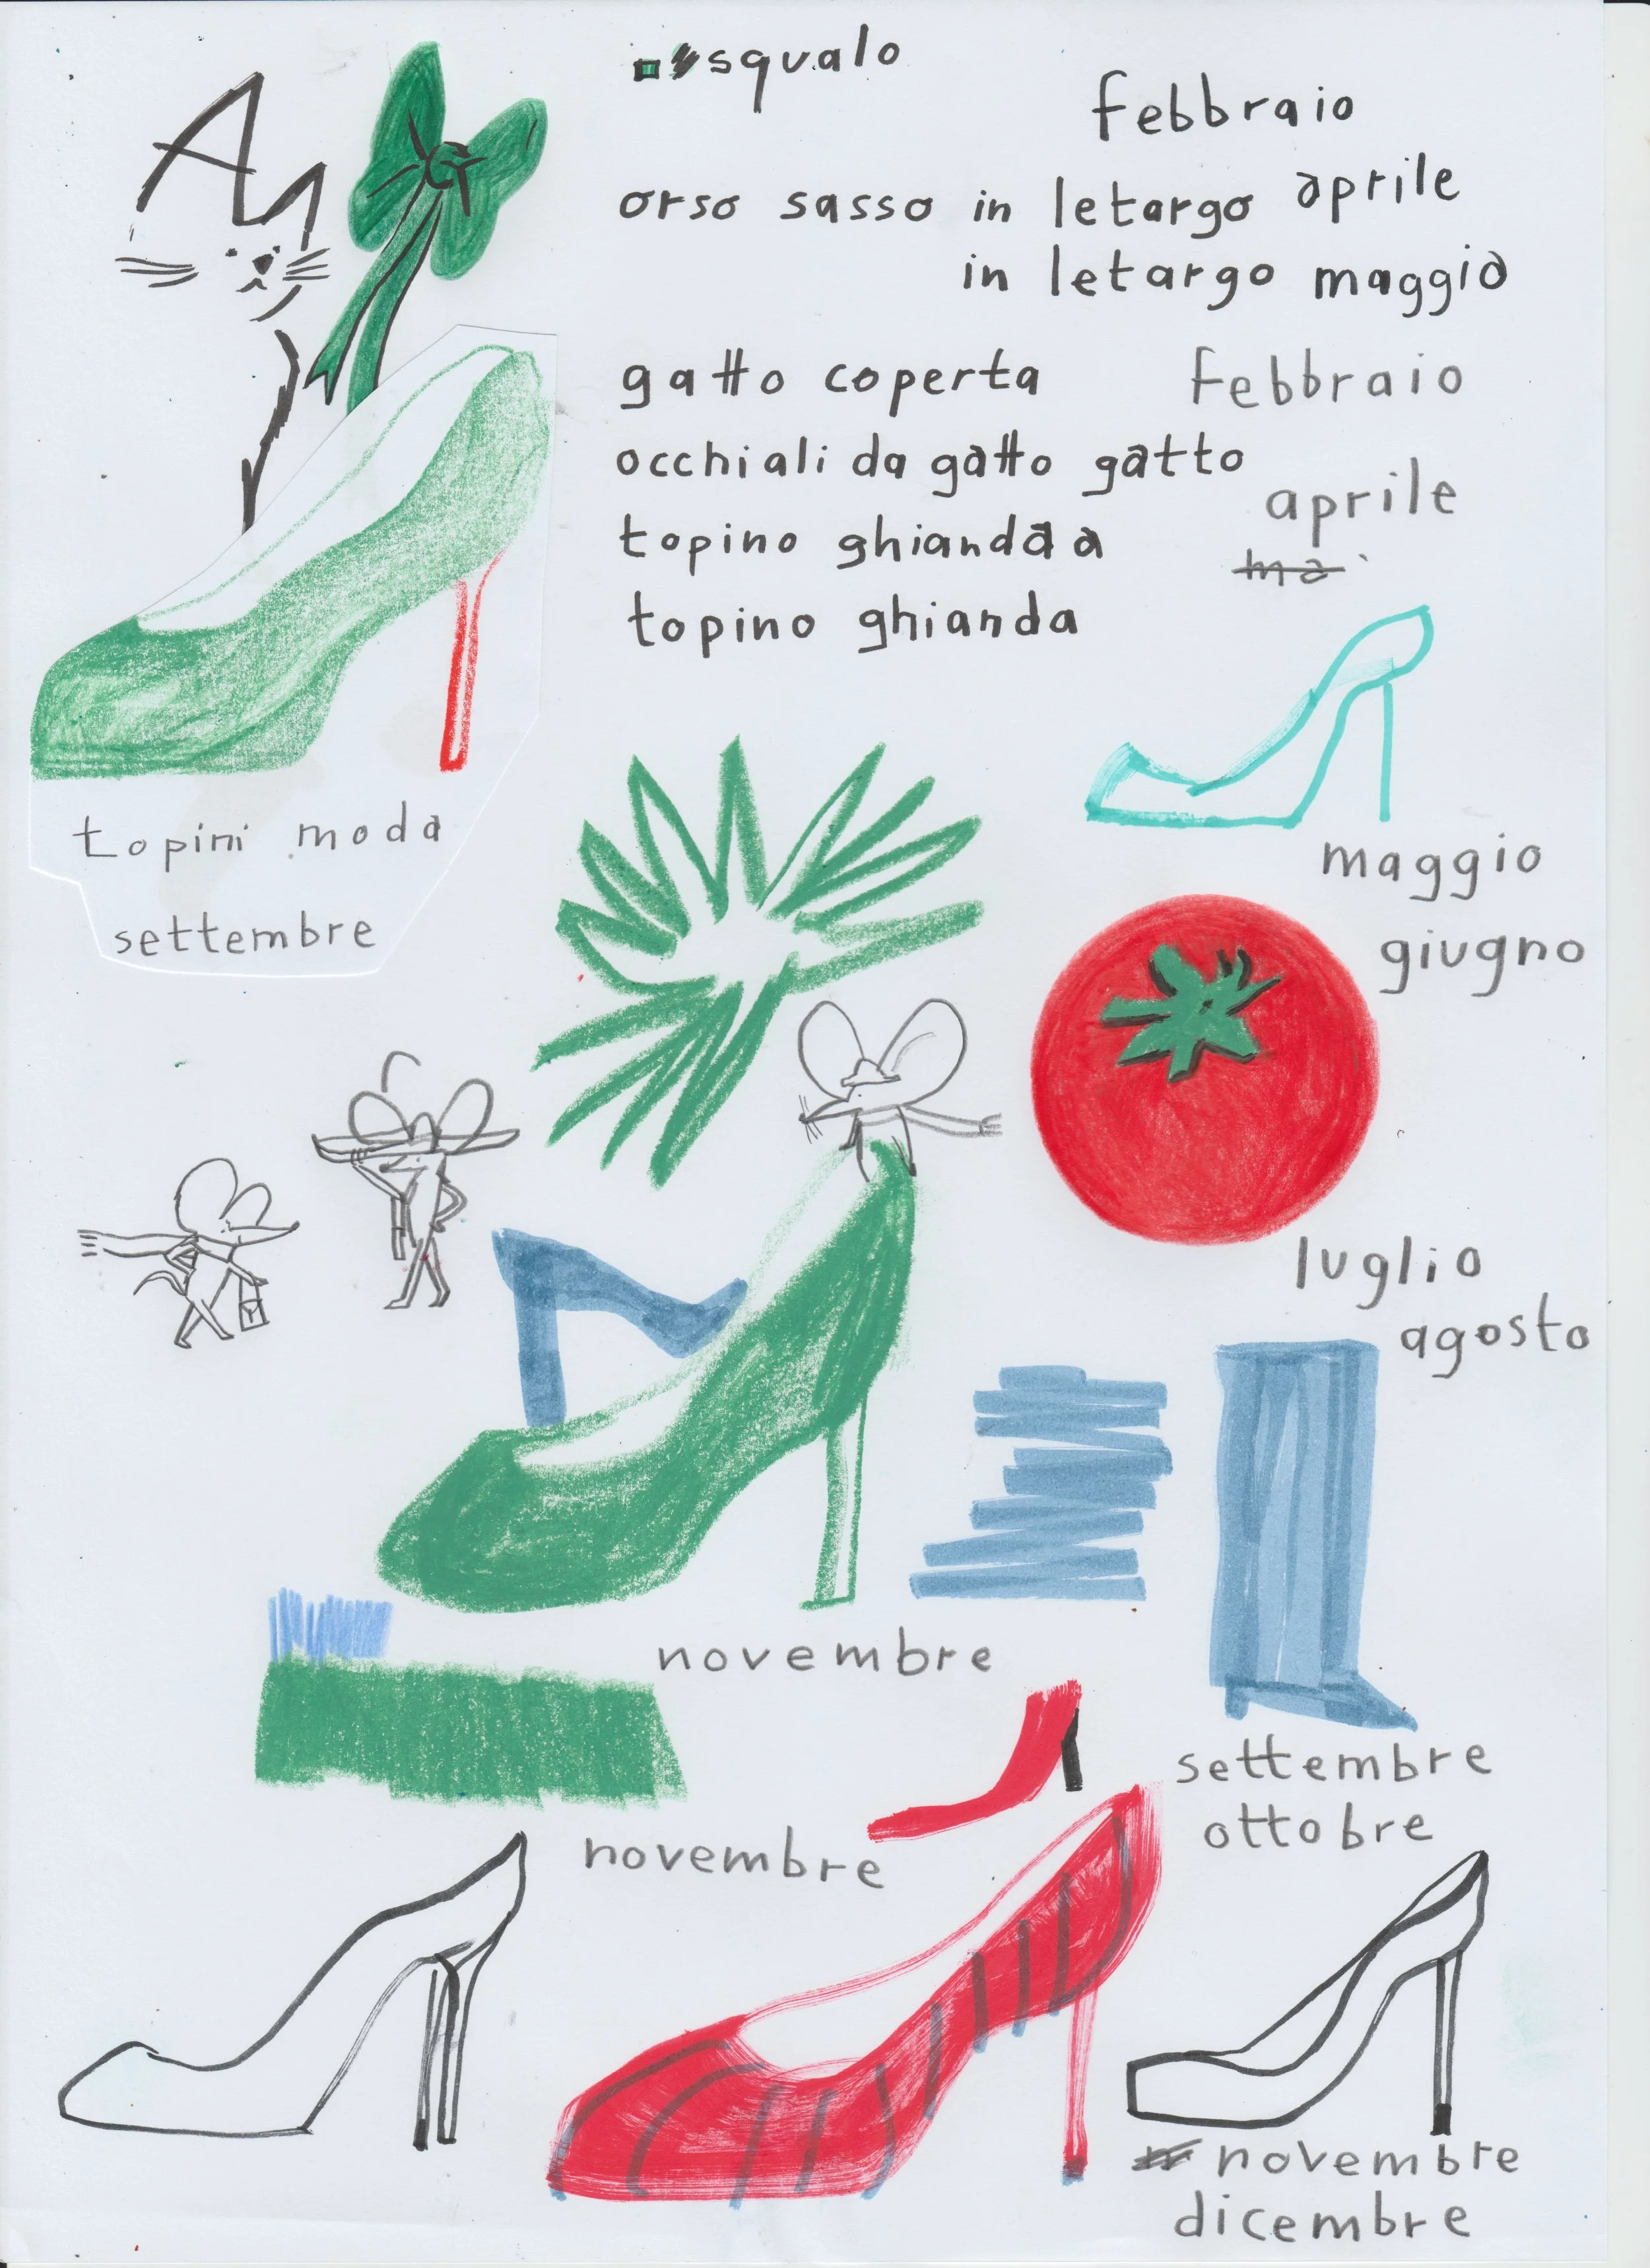 squalo
febbraio
orso sasso in letargo aprile
in letargo maggio
gatto coperta febbraio
occhiali da gatto gatto
aprile
topino ghianda a
ma
topino ghianda
topini moda
settembre
maggio
giugno
luglio
agosto
novembre
settembre
ottobre
novembre
novembre
dicembre